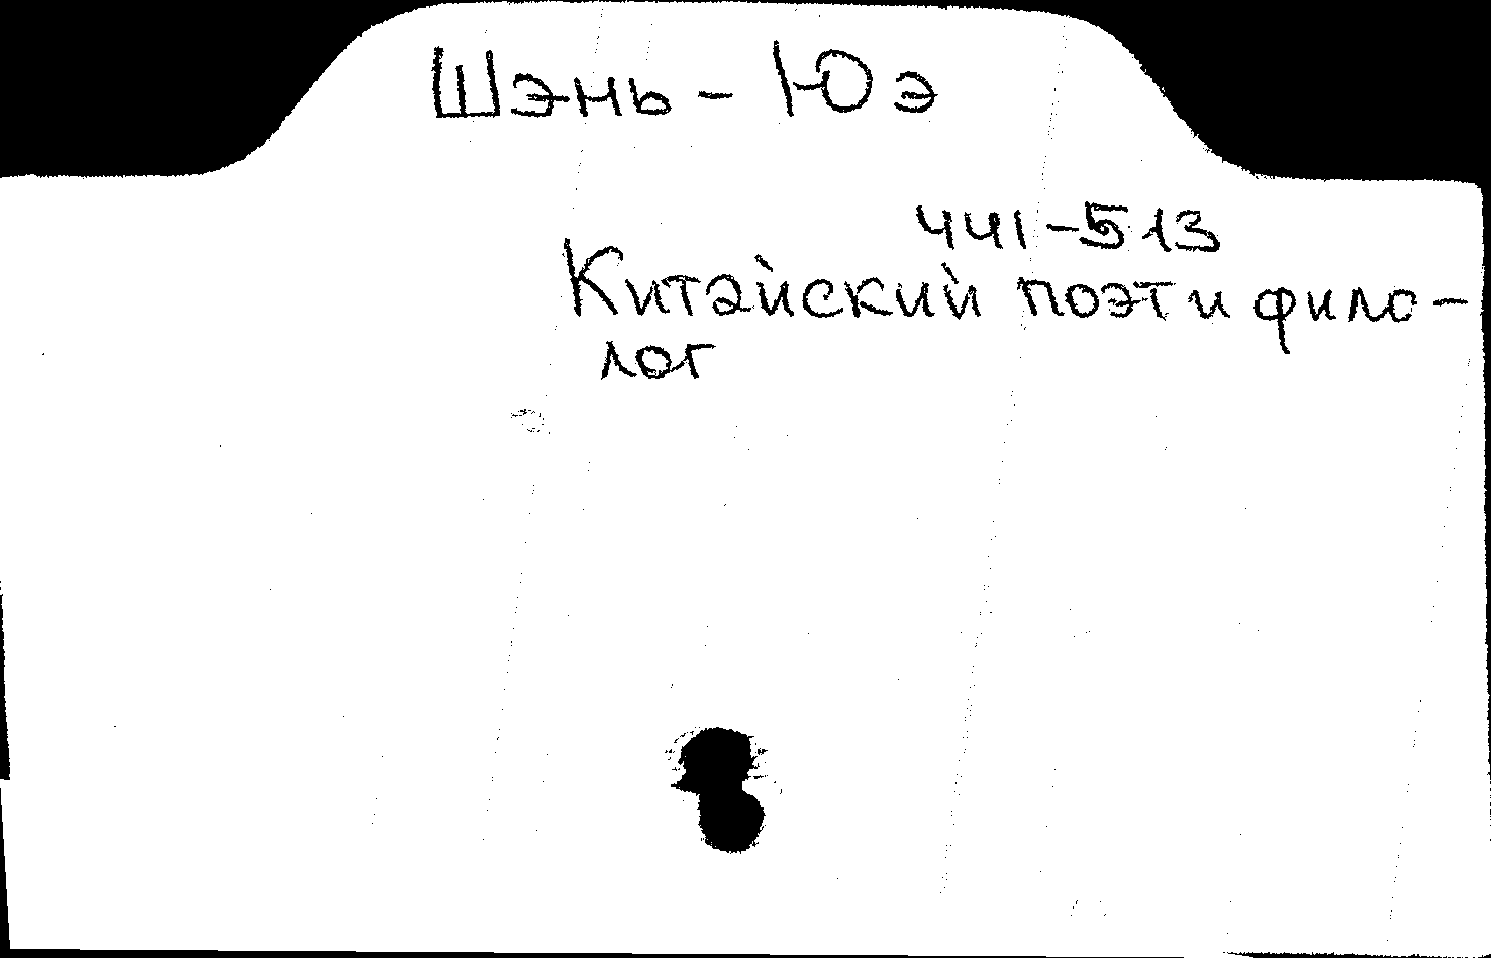 Шэнь-Юэ
441-513
Китайский поэт и фило-
лог